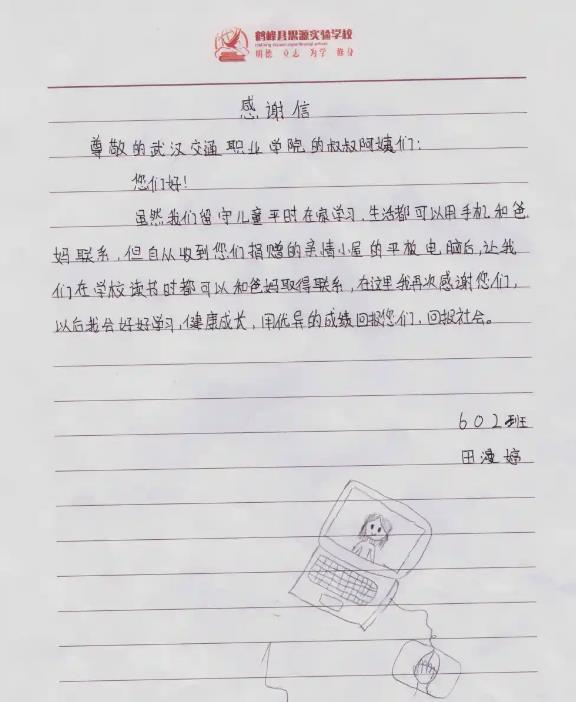 鹤峰县思源实验学校
明德 立志 为学 修身
感谢信
尊敬的武汉交通职业学院的叔叔阿姨们：
您们好！
虽然我们留守儿童平时在家学习，生活都可以用手机和爸
妈联系，但自从收到您们捐赠的亲情小屋的平放电脑后，让我
们在学校读书时都可以和爸妈取得联系，在这里我再次感谢您们，
以后我会好好学习，健康成长，用优异的成绩回报您们，回报社会。
602班
田漫婷